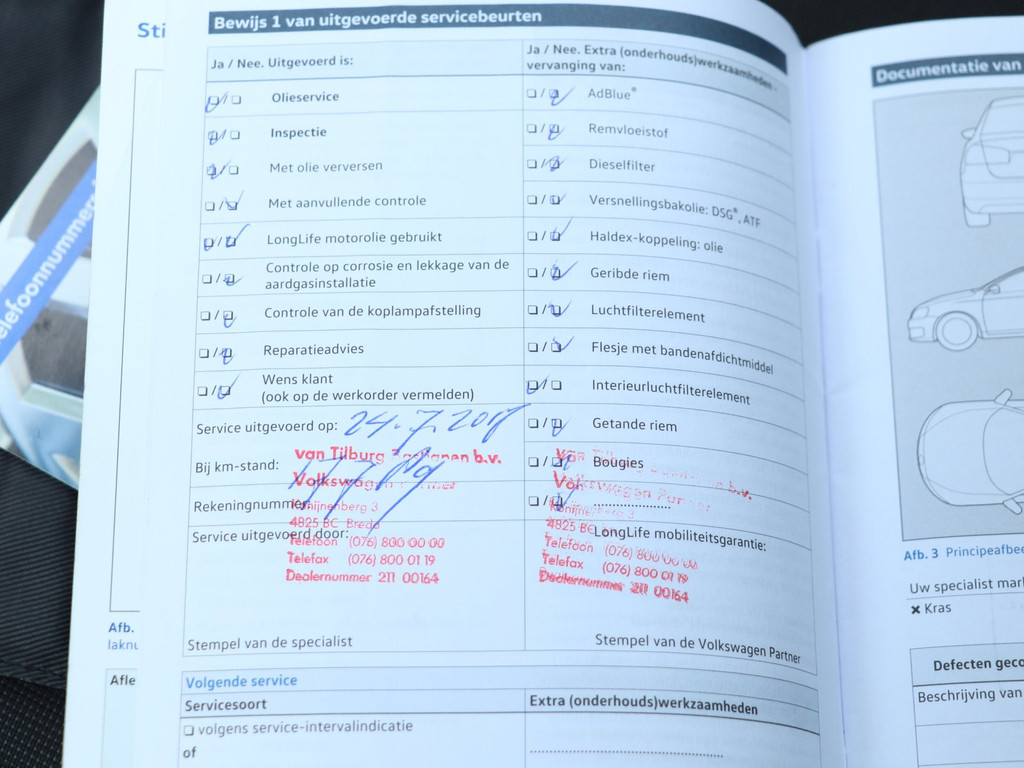 Sti
elefoonnummers
Bewijs 1 van uitgevoerde servicebeurten
Ja / Nee. Uitgevoerd is:
Olieservice
Inspectie
Met olie verversen
Met aanvullende controle
LongLife motorolie gebruikt
Controle op corrosie en lekkage van de
aardgasinstallatie
Controle van de koplampafstelling
Reparatieadvies
Wens klant
(ook op de werkorder vermelden)
Service uitgevoerd op: 24.7.2017
Bij km-stand:
Rekeningnummer
Service uitgevoerd door:
van Tilburg b.v.
Volkswagen Partner
Konijnenberg 3
4825 BC Breda
Telefoon (076) 800 00 00
Telefax (076) 800 01 19
Dealernummer 211 00164
Stempel van de specialist
Ja / Nee. Extra (onderhouds)werkzaamheden -
vervanging van:
AdBlue®
Remvloeistof
Dieselfilter
Versnellingsbakolie: DSG®, ATF
Haldex-koppeling: olie
Geribde riem
Luchtfilterelement
Flesje met bandenafdichtmiddel
Interieurluchtfilterelement
Getande riem
Bougies
LongLife mobiliteitsgarantie:
van Tilburg b.v.
Volkswagen Partner
Konijnenberg 3
4825 BC
Telefoon (076) 800 00 00
Telefax (076) 800 01 19
Dealernummer 211 00164
Stempel van de Volkswagen Partner
Volgende service
Servicesoort
Extra (onderhouds)werkzaamheden
volgens service-intervalindicatie
of
Afb.
laknu
Afle
Documentatie van
Afb. 3 Principeafbee
Uw specialist mar
Kras
Defecten geco
Beschrijving van